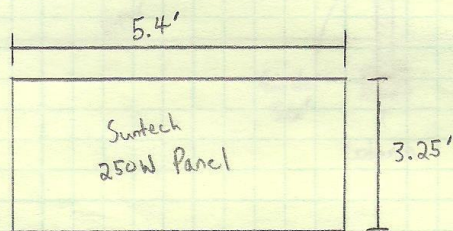 5.4'
Suntech
250W Panel
3.25'